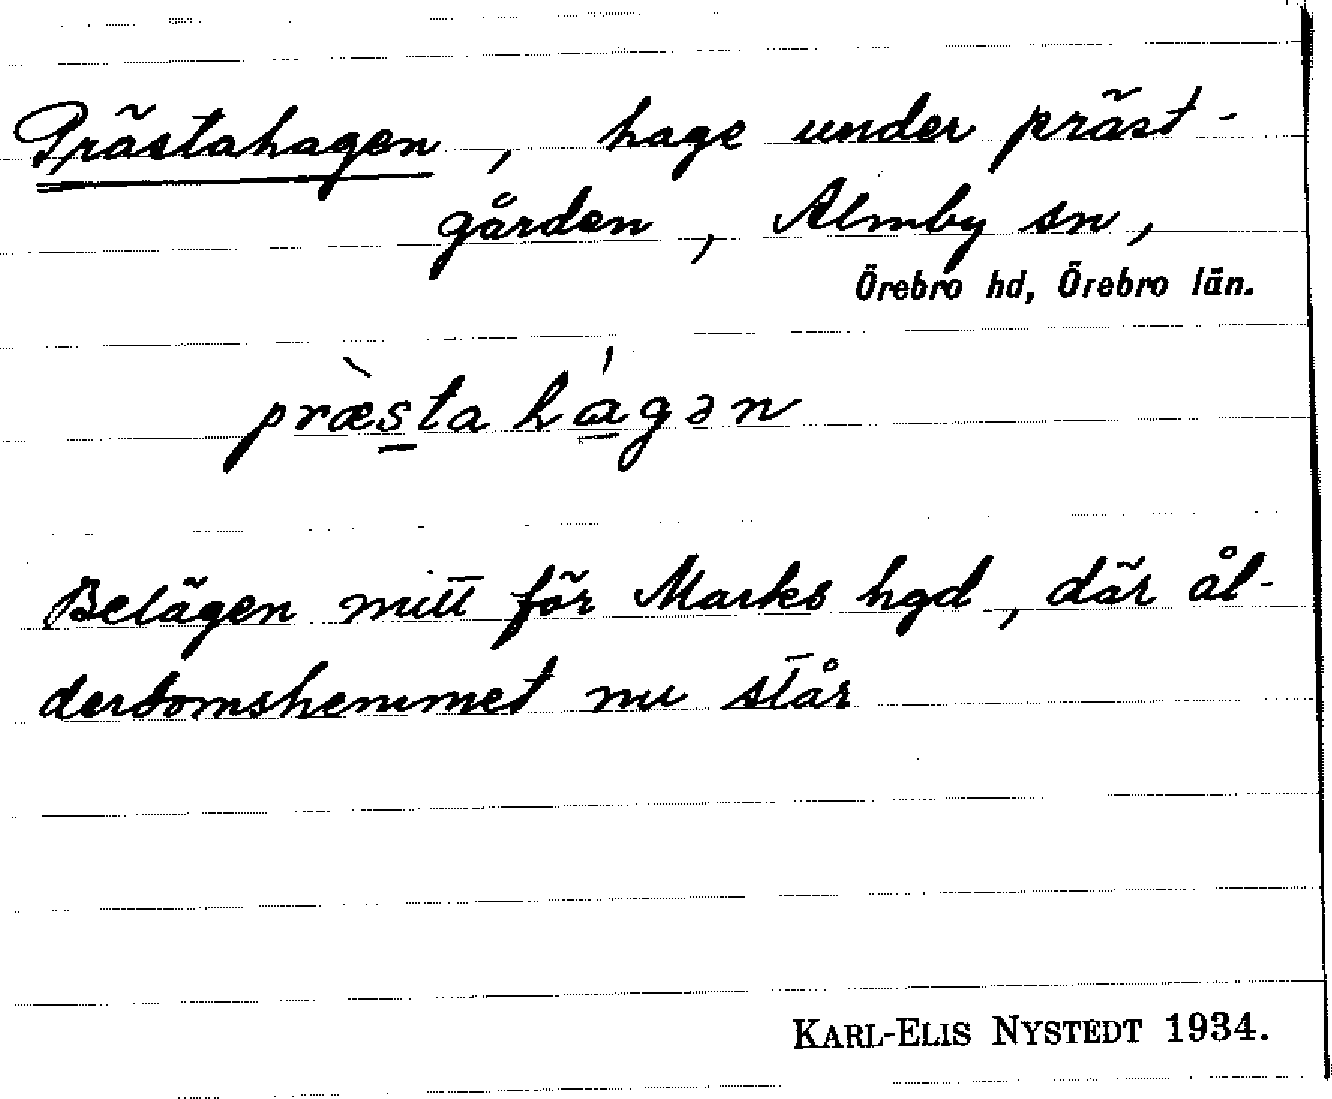 Prästahagen, hage under präst-
gården, Almby sn,
Örebro hd, Örebro län.
præ̀sta hágən
Belägen mitt för Marks hgd, där ål-
derdomshemmet nu står
KARL-ELIS NYSTEDT 1934.